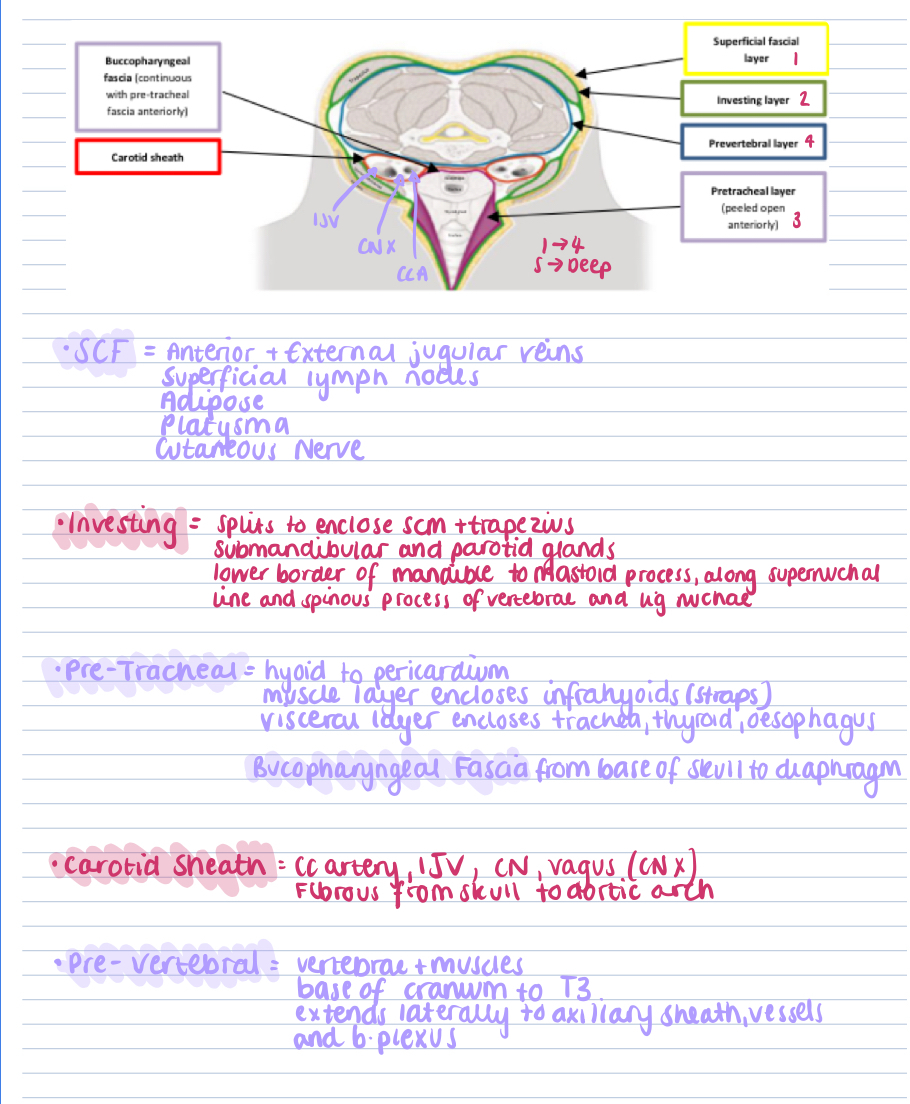 Buccopharyngeal
fascia (continuous
with pre-tracheal
fascia anteriorly)
Carotid sheath
Superficial fascial
layer 1
Investing layer 2
Prevertebral layer 4
Pretracheal layer
(peeled open
anteriorly) 3
Trapezius
IJV
CN X
CCA
1→4
S→Deep
·SCF = Anterior + External jugular veins
Superficial lymph nodes
Adipose
Platysma
Cutaneous Nerve
·Investing = splits to enclose scm + trapezius
submandibular and parotid glands
lower border of mandible to mastoid process, along supernuchal
line and spinous process of vertebrae and lig nuchae
·Pre-Tracheal = hyoid to pericardium
muscle layer encloses infrahyoids (straps)
visceral layer encloses trachea, thyroid, oesophagus
Bucopharyngeal Fascia from base of skull to diaphragm
·Carotid Sheath = CC artery, IJV, CN, vagus (CN X)
Fibrous from skull to aortic arch
·Pre-Vertebral = vertebrae + muscles
base of cranium to T3
extends laterally to axillary sheath, vessels
and b.plexus